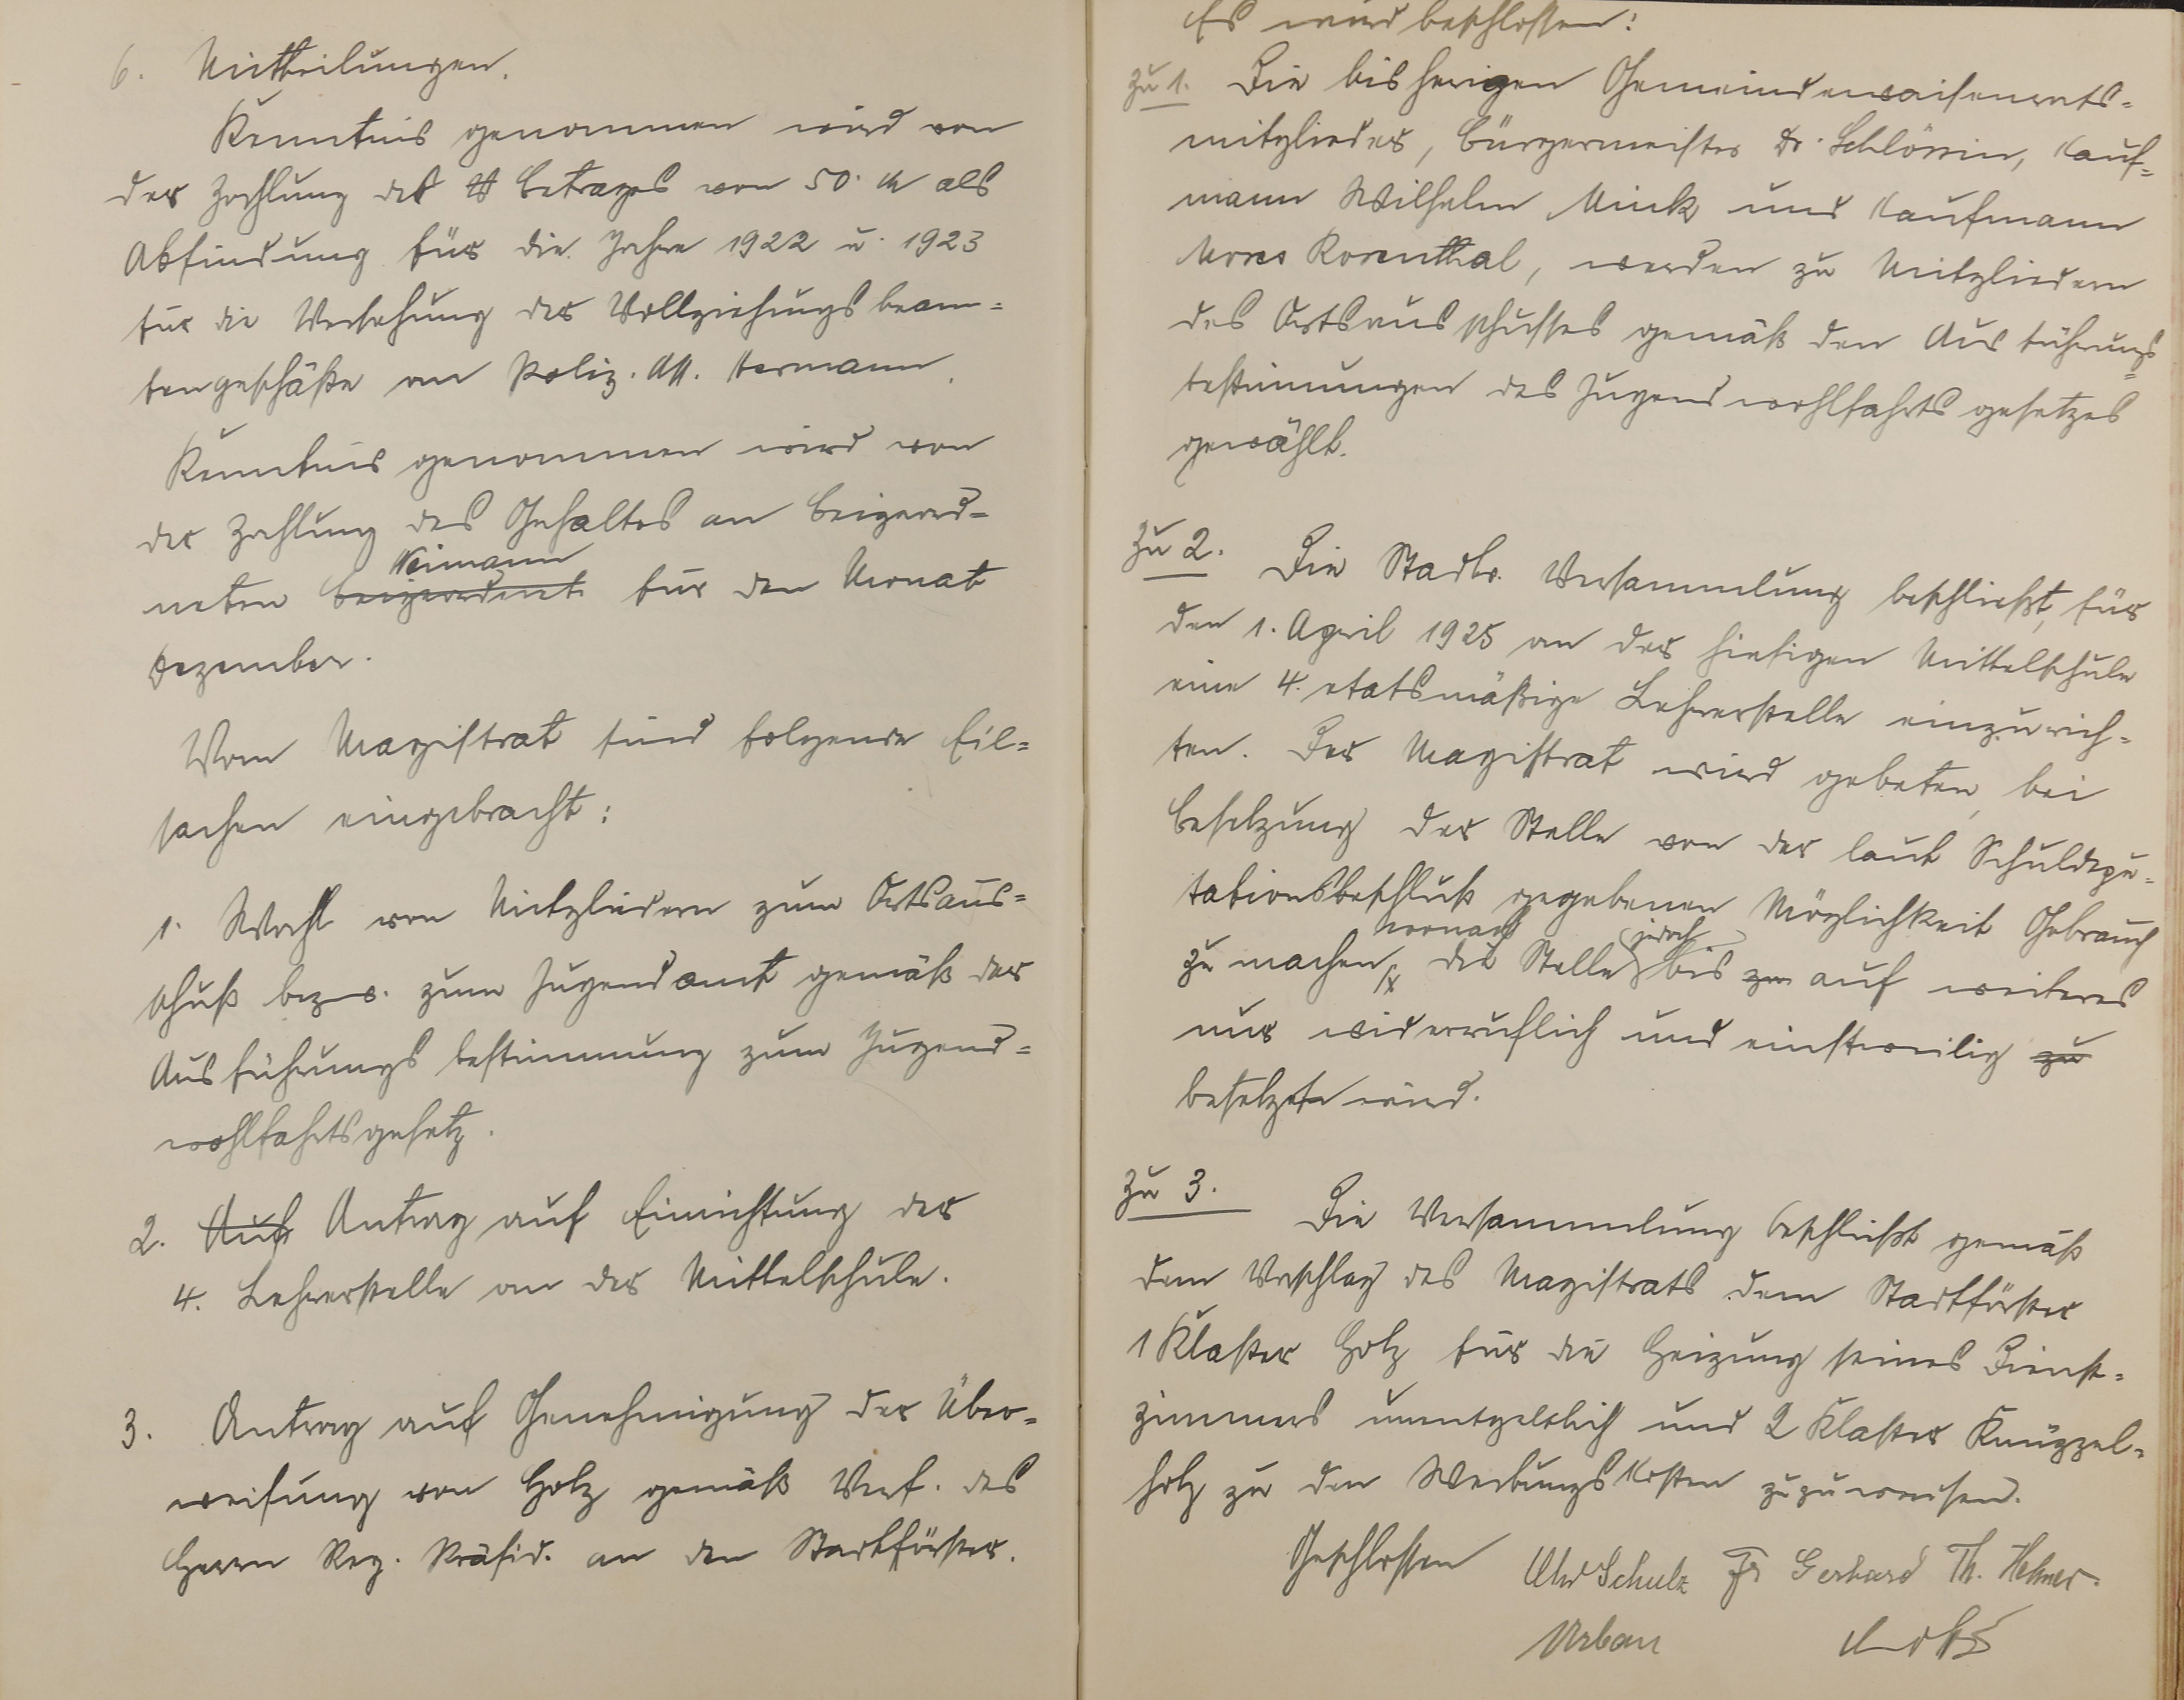 6. Mitteilungen.
Kenntnis genommen wird von
der Zahlung des Betrages von 50 M als
Abfindung für die Jahre 1922 u. 1923
für die Versehung der Vollziehungsbeam=
tengeschäfte an Poliz. Ass. Hermann.
Kenntnis genommen wird von
der Zahlung des Gehaltes an Beigeord=
Neimann
neten Beigeordnet für den Monat
Dezember.
Vom Magistrat sind folgende Eil=
sachen eingebracht:
1. Wahl von Mitgliedern zum Ortsaus=
schuß bezw. zum Jugendamt gemäß der
Ausführungsbestimmung zum Jugend=
wohlfahrtsgesetz.
2. Auf Antrag auf Einrichtung der
4. Lehrerstelle an der Mittelschule.
3. Antrag auf Genehmigung der Über=
weisung von Holz gemäß Verf. des
Herrn Reg. Präsid. an den Stadtförster.
Es wird beschlossen:
Zu 1. Die bisherigen Gemeindewaisenrats=
mitglieder, Bürgermeister Dr. Schlössin, Kauf=
mann Wilhelm Minck und Kaufmann
Mores Rosenthal, werden zu Mitgliedern
des Ortsausschusses gemäß den Ausführungs=
bestimmungen des Jugendwohlfahrtsgesetzes
gewählt.
Zu 2. Die Stadtv. Versammlung beschließt, für
den 1. April 1925 an der hiesigen Mittelschule
eine 4. etatsmäßige Lehrerstelle einzurich=
ten. Der Magistrat wird gebeten, bei
Besetzung der Stelle von der laut Schuldepu=
tationsbeschluß gegebenen Möglichkeit Gebrauch
wonach jedoch
zu machen, die Stelle bis zu auf weiteres
nur widerruflich und einstweilig zu
besetzt wird.
Zu 3. Die Versammlung beschließt gemäß
dem Vorschlag des Magistrats dem Stadtförster
1 Klafter Holz für die Heizung seines Dienst=
zimmers unentgeltlich und 2 Klafter Knüppel=
holz zu den Werbungskosten zuzuweisen.
Geschlossen Schulz Fr Gerhard Th. Hehner.
Urban